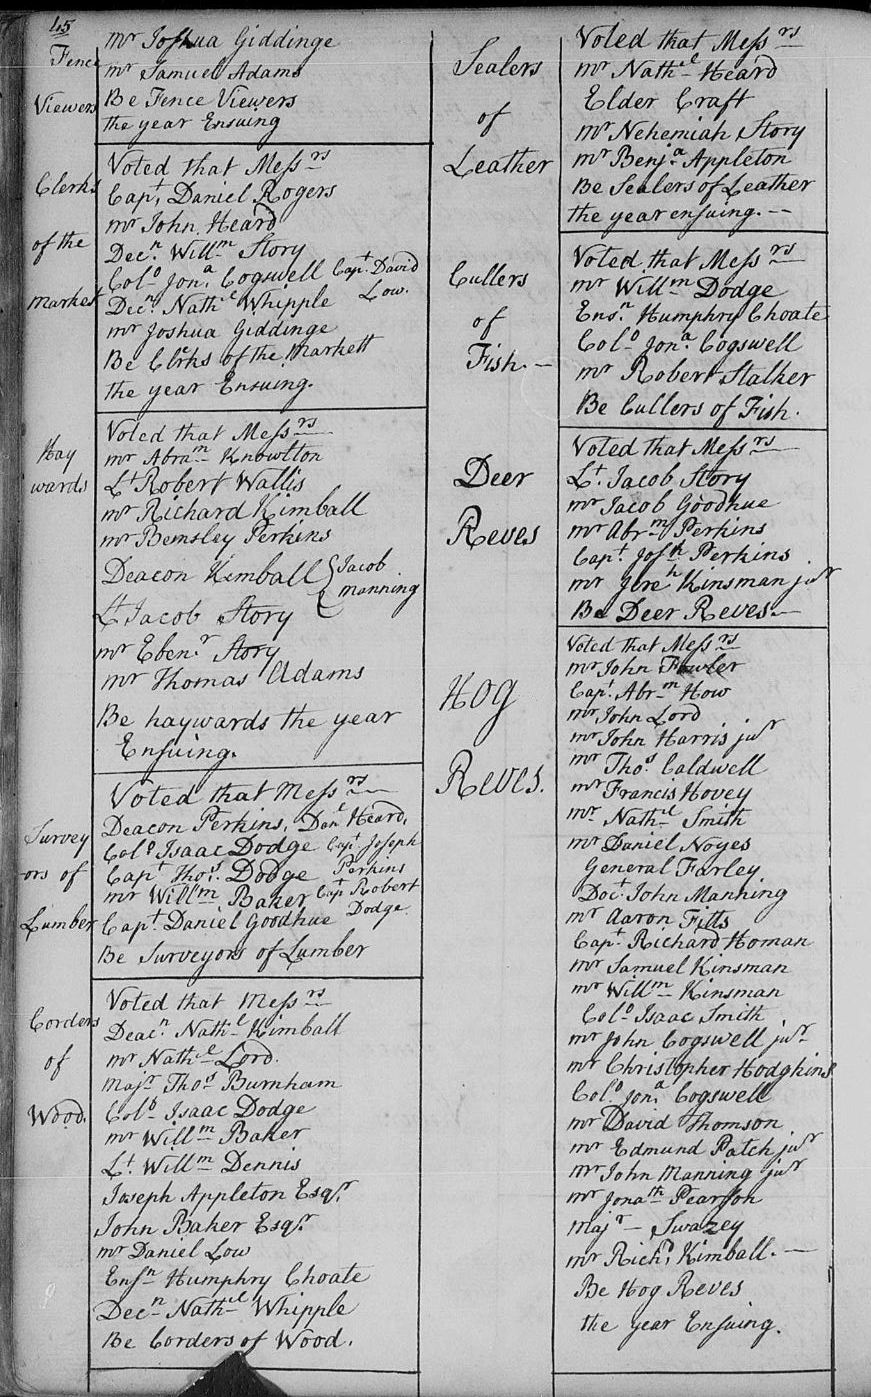 45
Fence
Viewers
mr Joshua Giddinge
mr Samuel Adams
Be Fence Viewers
the year Ensuing
Clerks
of the
market
Voted that Messrs
Capt. Daniel Rogers
mr John Heard
Decn. Willm Story
Colo Jona. Cogswell Capt. David
Low.
Decn. Nathl Whipple
mr Joshua Giddinge
Be Clerks of the Markett
the year Ensuing.
Hay
wards
Voted that Messrs
mr Abram Knowlton
Lt Robert Wallis
mr Richard Kimball
mr Bemsley Perkins
Deacon Kimball { Jacob
manning
Lt Jacob Story
mr Ebenr Story
mr Thomas Adams
Be haywards the year
Ensuing.
Survey
ors of
Lumber
Voted that Messrs
Deacon Perkins, Danl Heard,
Colo Isaac Dodge Capt. Joseph
Perkins
Capt Thos. Dodge
mr Willm Baker Capt Robert
Dodge
Capt. Daniel Goodhue
Be Surveyors of Lumber
Corders
of
Wood.
Voted that Messrs
Deacn. Nathl Kimball
mr Nathl Lord.
Majr Thos Burnham
Colo Isaac Dodge
mr Willm Baker
Lt. Willm Dennis
Joseph Appleton Esqr.
John Baker Esqr
mr Daniel Low
Ensn Humphry Choate
Decn Nathl Whipple
Be Corders of Wood.
Sealers
of
Leather
Voted that Messrs
mr Nathl Heard
Elder Craft
mr Nehemiah Story
mr Benja. Appleton
Be Sealers of Leather
the year ensuing. --
Cullers
of
Fish. -
Voted that Messrs
mr Willm Dodge
Ensn Humphry Choate
Colo Jona. Cogswell
mr Robert Stalker
Be Cullers of Fish.
Deer
Reves
Voted that Messrs
Lt. Jacob Story
mr Jacob Goodhue
mr Abrm Perkins
Capt. Josh Perkins
mr Jereh Kinsman junr
Be Deer Reves. -
Hog
Reves.
Voted that Messrs
mr John Fowler
Capt. Abrm How
mr John Lord
mr John Harris junr
mr Thos. Caldwell
mr Francis Hovey
mr Nathl Smith
mr Daniel Noyes
General Farley
Doct. John Manning
mr Aaron Fitts
Capt. Richard Homan
mr Samuel Kinsman
mr Willm Kinsman
Colo Isaac Smith
mr John Cogswell junr
mr Christopher Hodgkins
Colo. Jona. Cogswell
mr David Thomson
mr Edmund Patch junr
mr John Manning junr
mr Jonath Pearson
Majr - Swazey
mr Richd. Kimball. -
Be Hog Reves
the year Ensuing.